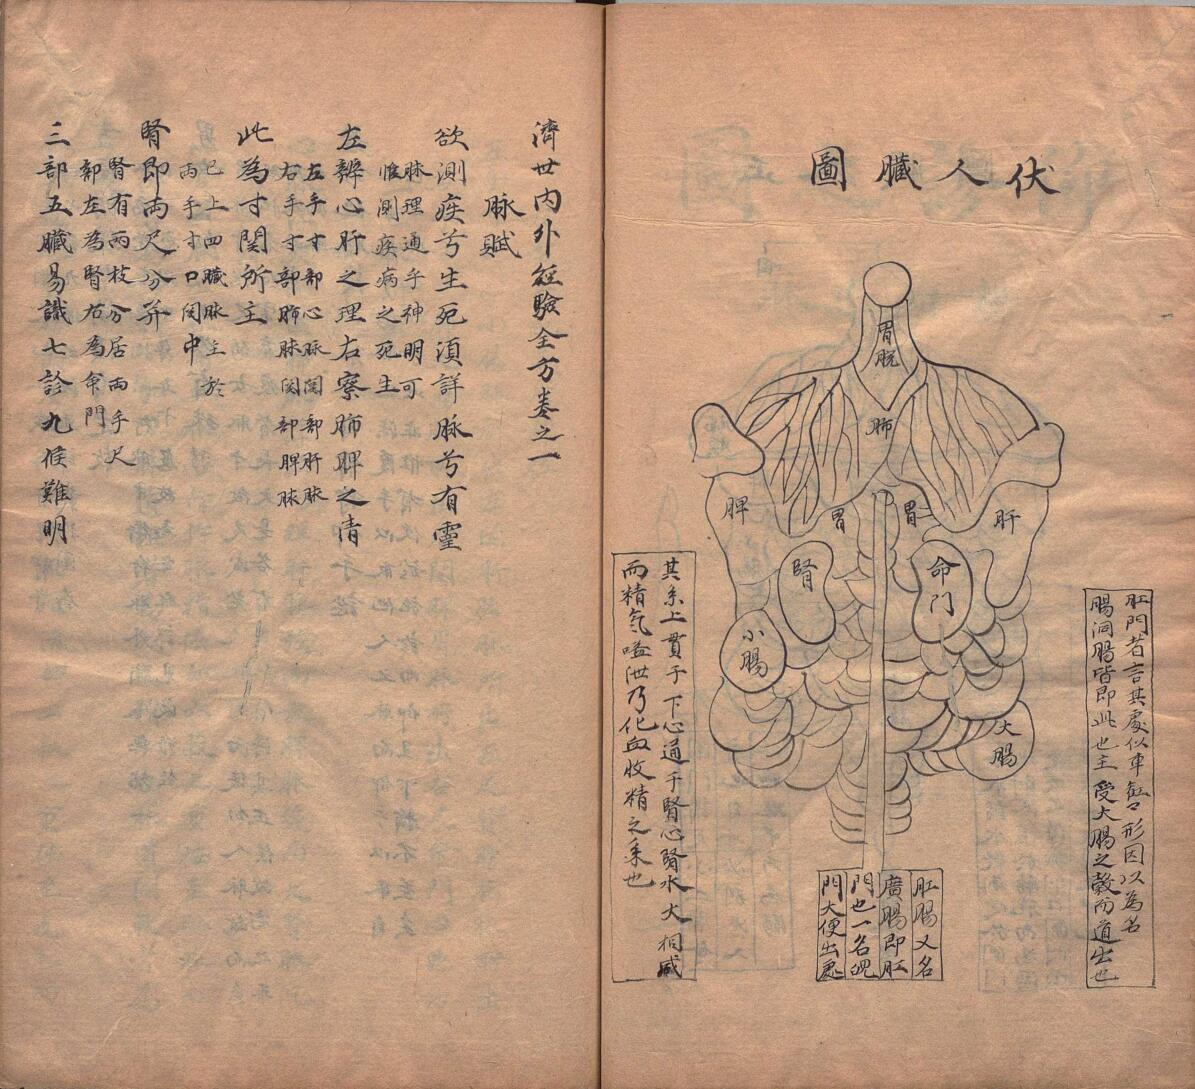 伏人臓圖
胃脘
肺
脾
胃
胃
肝
腎
命門
小腸
大腸
肛門者言其處似車缸々形因以為名
腸洞腸皆即此也主受大腸之穀而道出也
肛腸又名
廣腸即肛
門也一名魄
門大便出處
其系上貫于下心通于腎心腎水火相感
而精氣嗌泄乃化血收精之系也
濟世内外経驗全方巻之一
脉賦
欲測疾兮生死湏詳脉兮有靈
脉理通乎神明可
惟測疾病之死生
左辨心肝之理右察肺脾之情
左手寸部心脉関部肝脉
右手寸部肺脉関部脾脉
此為寸関所主
已上四臓脉主於
両手寸口関中
腎即両尺分并
腎有两枝分居两手尺
部左為腎右為命門
三部五臓易識七診九候難明